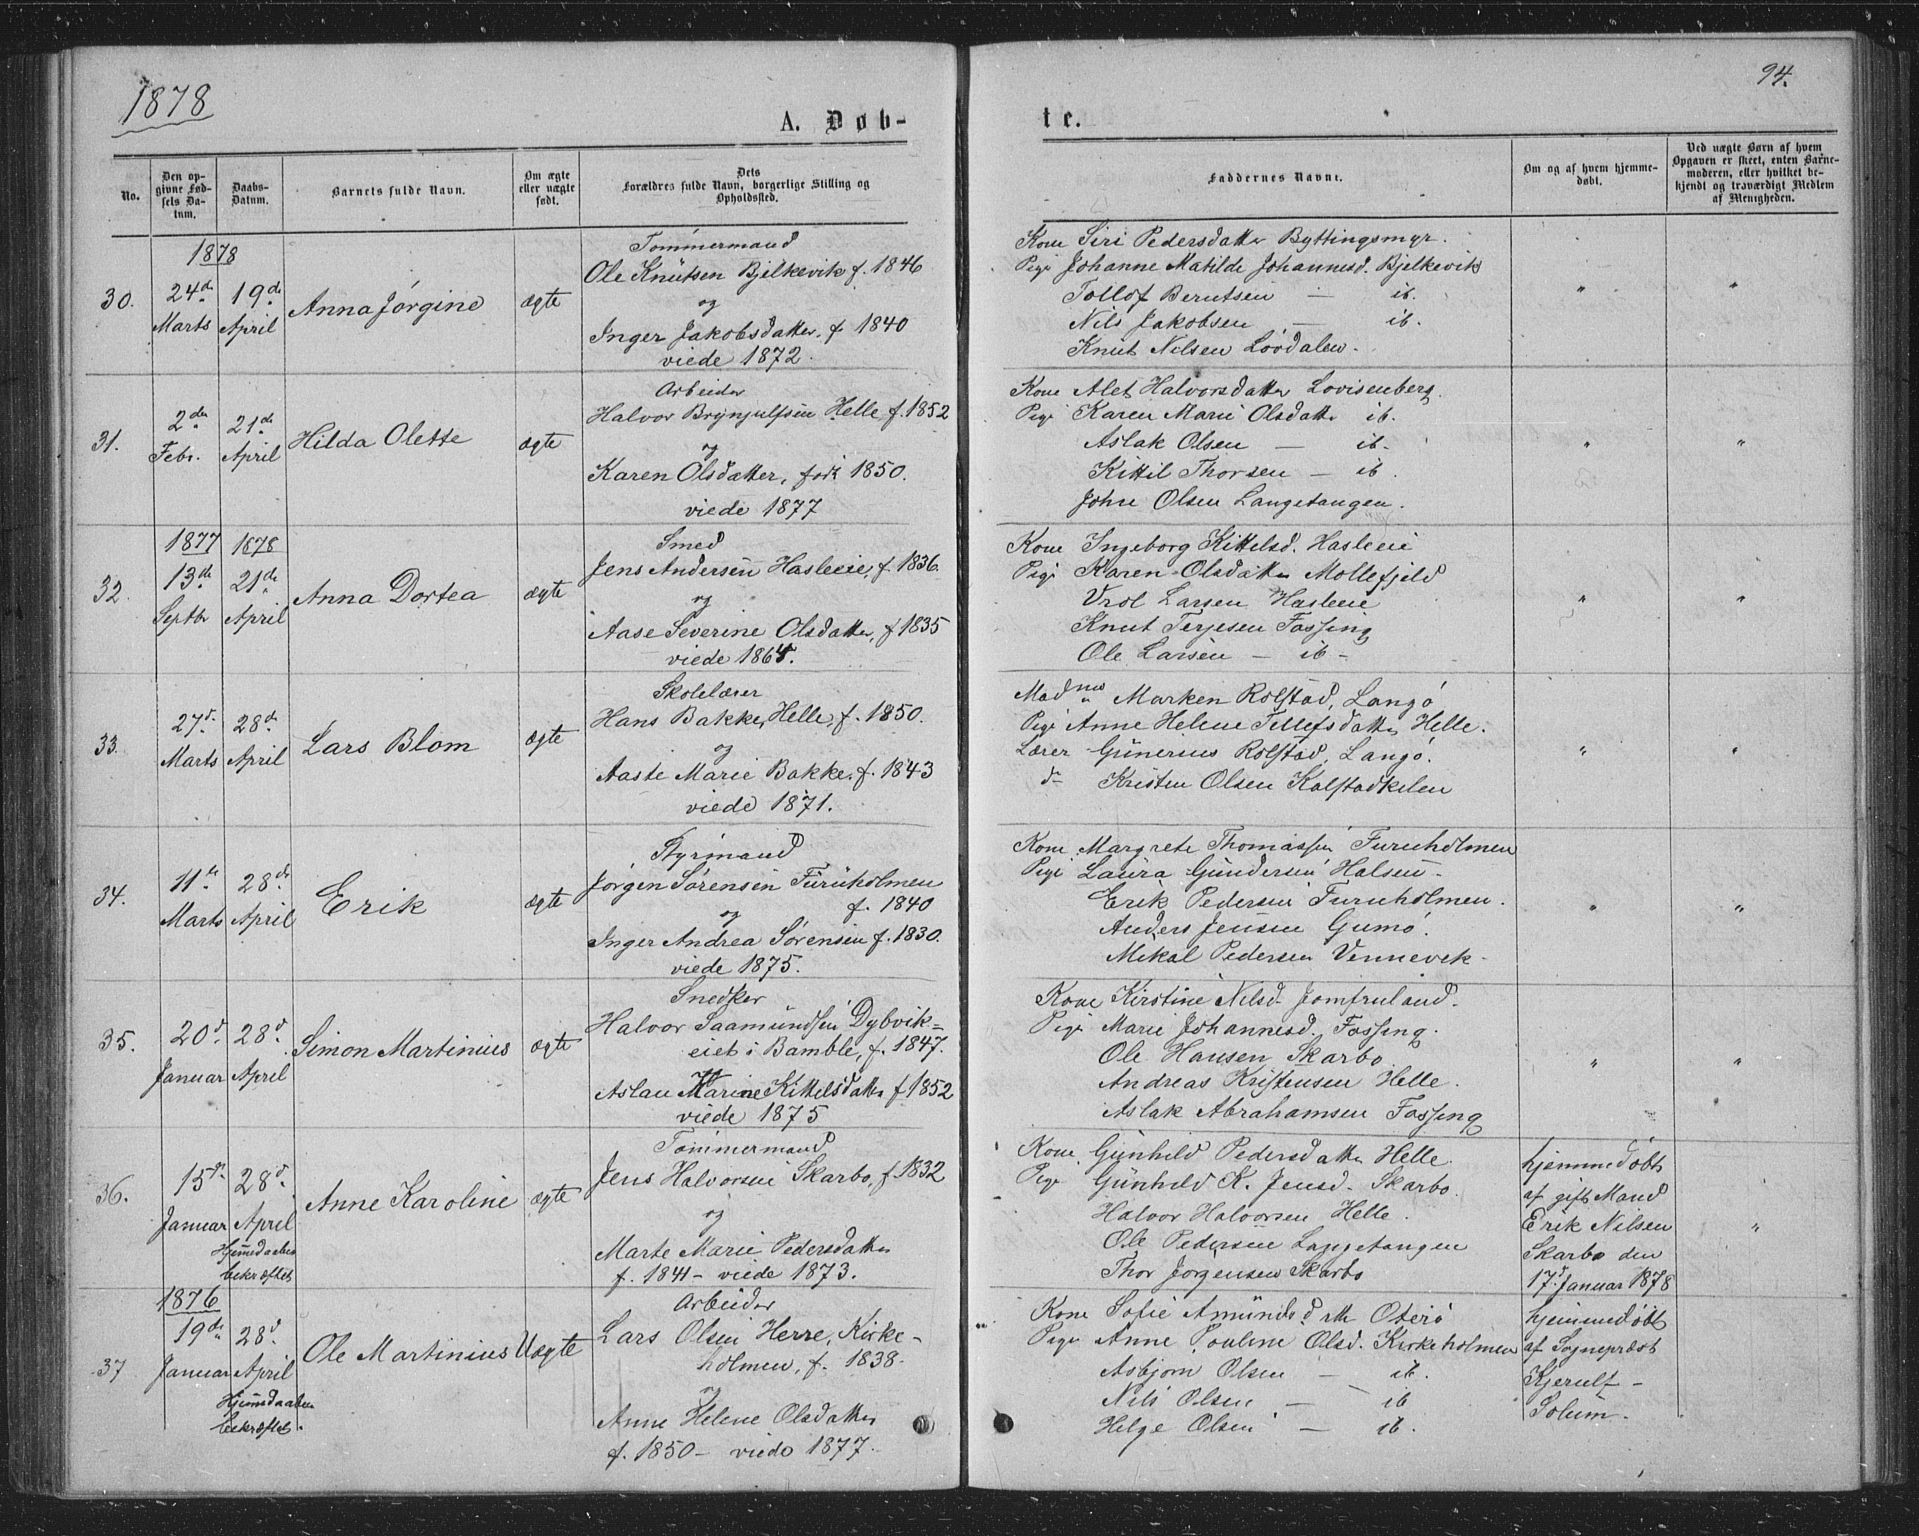 1878
94.
A. Døb-
te.
No.
Den opgivne Fødsels Datum.
Daabs-Datum.
Barnets fulde Navn.
Om ægte eller uægte født.
Dets Forældres fulde Navn, borgerlige Stilling og Opholdssted.
Faddernes Navne.
Om og af hvem hjemmedøbt.
Ved uægte Børn af hvem Opgaven er skeet, enten Barnemoderen, eller hvilket bekjendt og troværdigt Medlem af Menigheden.
1878
30. 24de Marts 19de April Anna Jørgine ægte
Tømmermand
Ole Knutsen Bjelkevik f. 1846
og
Inger Jakobsdatter. f. 1840
viede 1872.
Kone Siri Pedersdatter Byttingsmyr.
Pige Johanne Matilde Johannesd. Bjelkevik
Tollof Berntsen — ib.
Nils Jakobsen — ib.
Knut Nilsen Lövdalen.
" "
31. 2den Febr. 21de April Hilda Olette ægte
Arbeider
Halvor Brynjulfsen Helle f. 1852
og
Karen Olsdatter, född 1850.
viede 1877
Kone Alet Halvorsdatter Lovisenberg.
Pige Karen Marie Olsdatter ib.
Aslak Olsen — ib.
Kittil Thorsen — ib.
Johne Olsen Langetangen.
" "
1877 1878
32. 13de Septbr 21de April Anna Dortea ægte
Smed
Jens Andersen Hasleeie, f. 1836.
og
Aase Severine Olsdatter, f 1835
viede 1865.
Kone Ingeborg Kittelsd. Hasleeie
Pige Karen Olsdatter Mollefjeld
Vrol Larsen Hasleeie
Knut Terjesen Fossing
Ole Larsen — ib —
" "
33. 27d. Marts 28de April Lars Blom ægte
Skolelærer
Hans Bakke, Helle, f. 1850.
og
Aaste Marie Bakke. f. 1843
viede 1871.
Madme Marken Rolfstad, Langö
Pige Anne Helene Tellefsdatter Helle.
Lærer Gunerius Rolfstad, Langö.
do Kristen Olsen Kalstadkilen
" "
34. 11te Marts 28de April Erik ægte
Styrmand
Jørgen Sørensen Furuholmen
og f. 1840
Inger Andrea Sørensen f. 1830.
viede 1875.
Kone Margrete Thomassen Furuholmen
Pige Laura Gundersen Halsen.
Erik Pedersen Furuholmen.
Anders Jensen Gumö.
Mikal Pedersen Vennevek.
" "
35. 20d. Januar 28d. April Simon Martinius ægte
Snedker
Halvor Saamundsen Dybvik-
eiet i Bamble, f. 1847.
og
Aslau Karine Kittelsdatter f 1852
viede 1875
Kone Kirstine Nilsd. Jomfruland.
Pige Marie Johannesd. Fossing.
Ole Hansen Skarbo
Andreas Kristensen Helle.
Aslak Abrahamsen Fossing
" "
36. 15de Januar 28d. April Anne Karoline ægte
Hjemdaaben bekræftet
Tømmermand
Jens Halvorsen Skarbo, f. 1832
og
Marte Marie Pedersdatter
f. 1841 — viede 1873.
Kone Gunhild Pedersdatter Helle.
Pige Gunhild K. Jensd. Skarbo.
Halvor Halvorsen Helle.
Ole Pedersen Langetangen
Thor Jørgensen Skarbo
hjemmedøbt
af gift Mand
Erik Nilsen
Skarbo den
17d Januar 1878
"
1876
37 19de Januar 28d. April Ole Martinius Uægte
Hjemdaaben bekræftet.
Arbeider
Lars Olsen Herre, Kirke-
holmen, f. 1838.
og
Anne Helene Olsdatter
f. 1850 — viede 1877.
Kone Sofie Amundsdatter Oterö
Pige Anne Pauline Olsd. Kirkeholmen
Asbjørn Olsen — ib.
Nils Olsen — ib
Helge Olsen — ib.
hjemmedøbt
af Sogneprest
Kjerulf —
Solum.